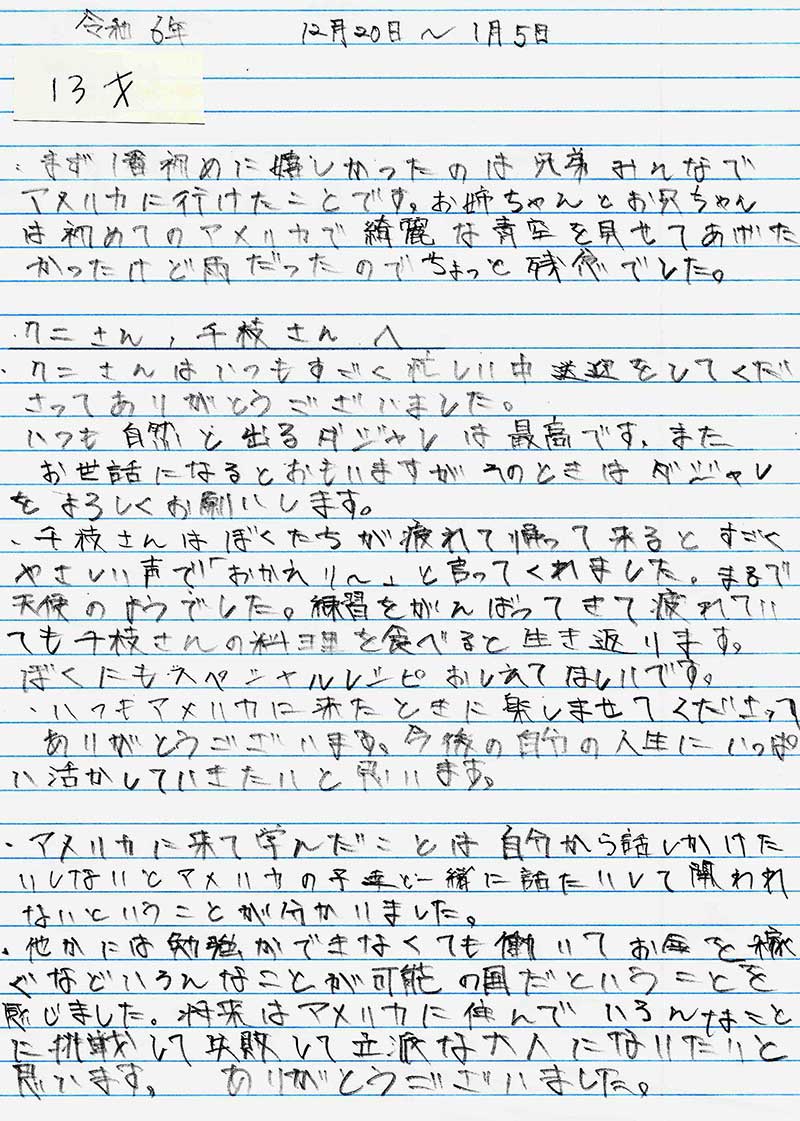 令和 6年 12月20日 〜 1月5日
13才
・まず1番初めに嬉しかったのは兄弟みんなで
アメリカに行けたことです。お姉ちゃんとお兄ちゃん
は初めてのアメリカで綺麗な青空を見せてあげた
かったけど雨だったのでちょっと残念でした。
・クニさん,千枝さん へ
・クニさんはいつもすごく忙しい中送迎をしてくだ
さってありがとうございました。
いつも自然と出るダジャレは最高です。また
お世話になるとおもいますがそのときはダジャレ
をよろしくお願いします。
・千枝さんはぼくたちが疲れて帰って来るとすごく
やさしい声で「おかえり〜」と言ってくれました。まるで
天使のようでした。練習をがんばってきて疲れてい
ても千枝さんの料理を食べると生き返ります。
ぼくにもスペシャルレシピおしえてほしいです。
・いつもアメリカに来たときに楽しませてくださって
ありがとうございます。今後の自分の人生にいっぱ
い活かしていきたいと思います。
・アメリカに来て学んだことは自分から話しかけた
りしないとアメリカの子達と一緒に話たりして関われ
ないということが分かりました。
・他かには勉強ができなくても働いてお金を稼
ぐなどいろんなことが可能の国だということを
感じました。将来はアメリカに住んでいろんなこと
に挑戦して失敗して立派な大人になりたいと
思います。 ありがとうございました。